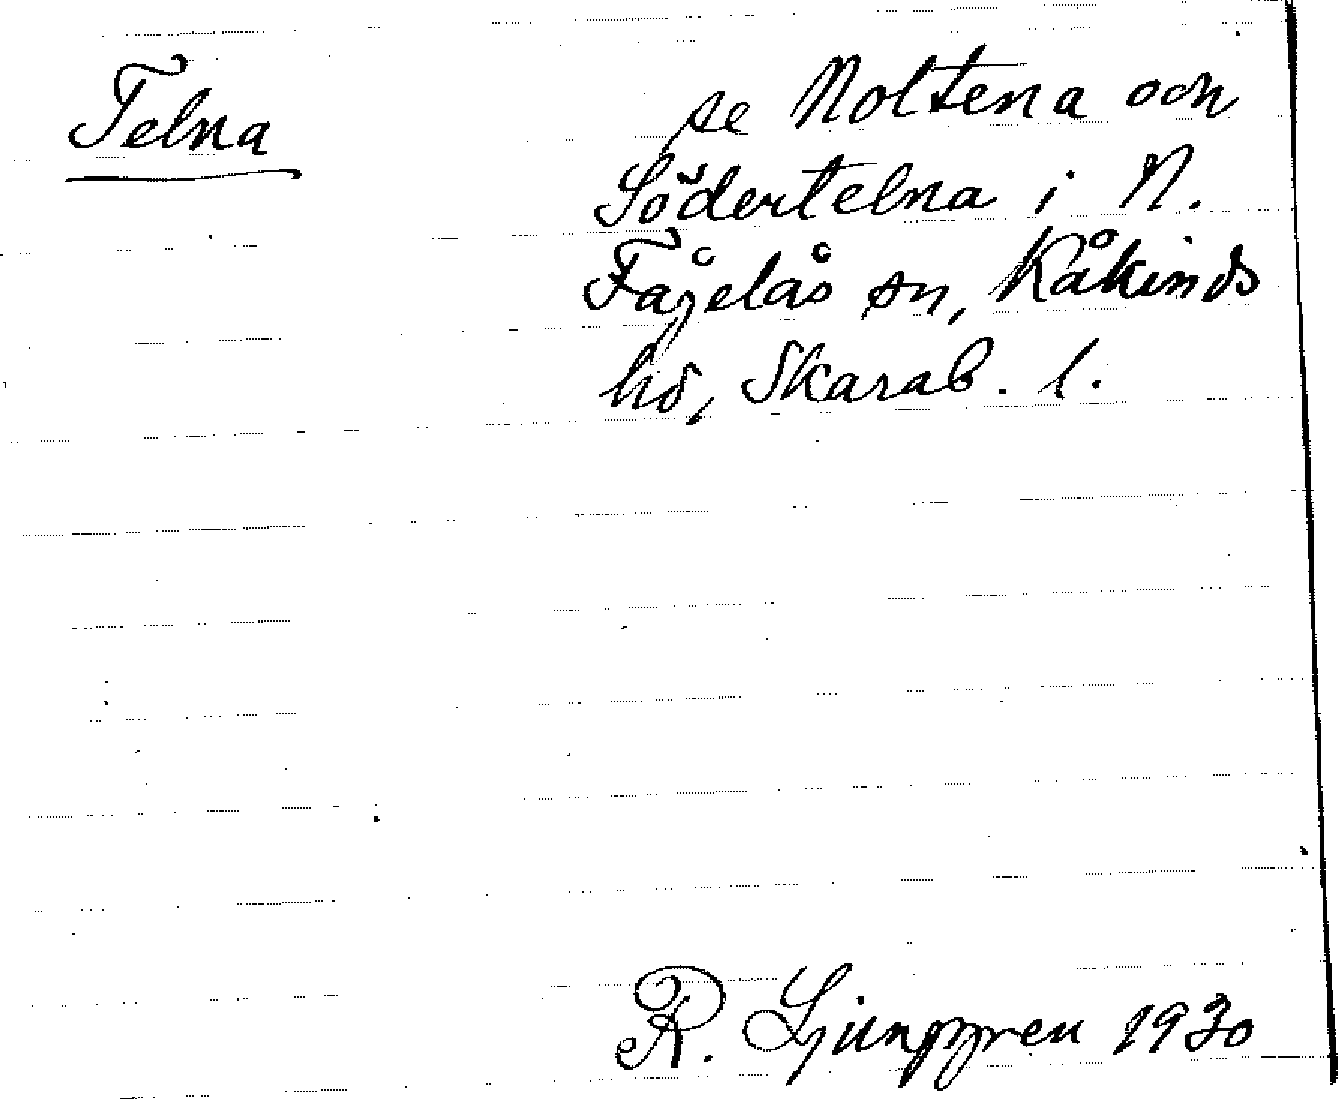 Telna
se Noltena och
Södertelna i N.
Fågelås sn, Kåkinds
hd, Skarab. l.
R. Ljunggren 1930